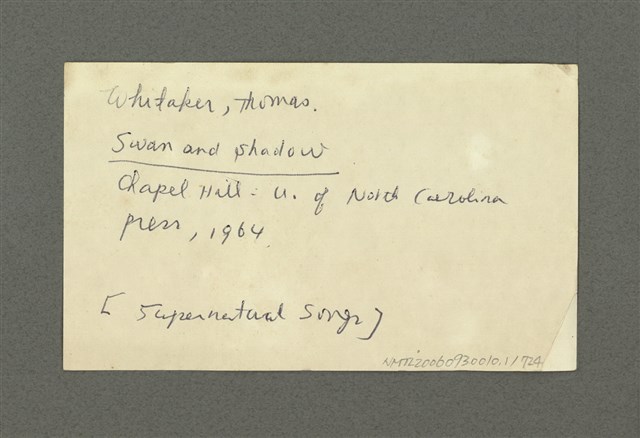 Whitaker, Thomas.
Swan and Shadow
Chapel Hill: U. of North Carolina
press, 1964.
[ Supernatural Songs ]
NMTL20060930010.1/724